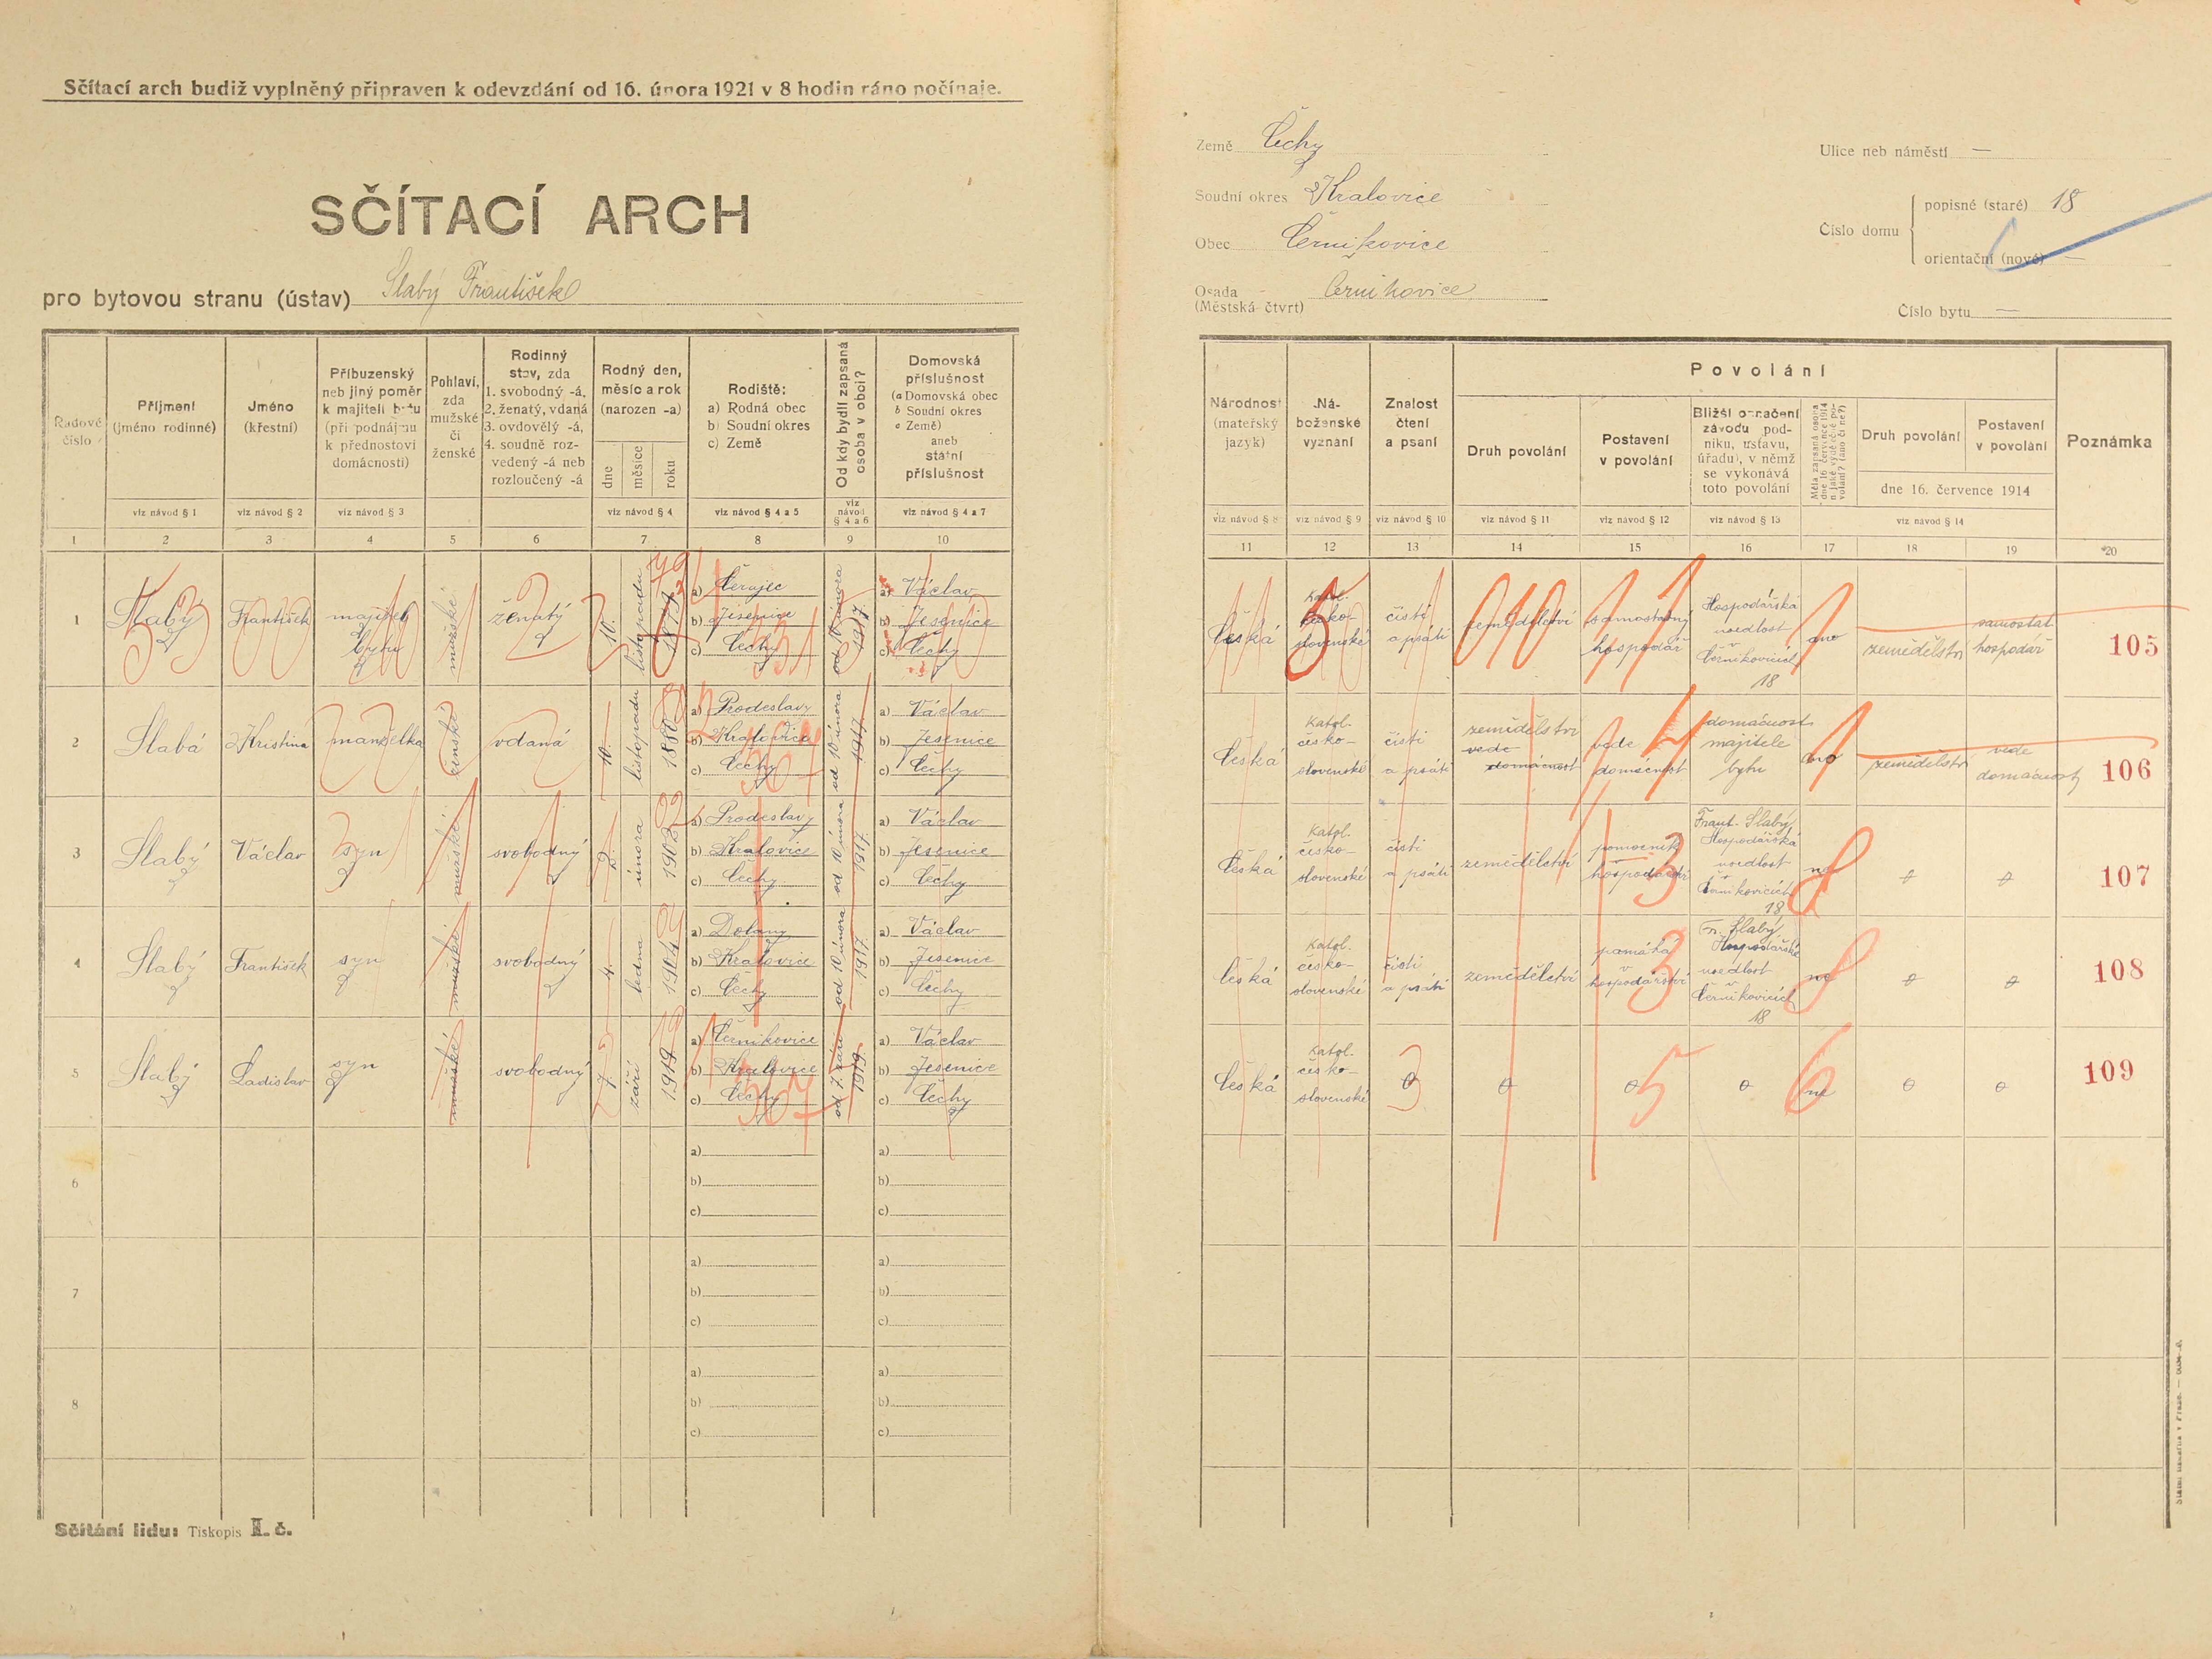 Sčítací arch budiž vyplněný připraven k odevzdání od 16. února 1921 v 8 hodin ráno počínaje.
SČÍTACÍ ARCH
pro bytovou stranu (ústav) Slabý František
Řadové číslo
Příjmení (jméno rodinné)
Jméno (křestní)
Příbuzenský neb jiný poměr k majiteli bytu (při podnájmu k přednostovi domácnosti)
Pohlaví, zda mužské či ženské
Rodinný stav, zda 1. svobodný -á, 2. ženatý, vdaná 3. ovdovělý -á, 4. soudně rozvedený -á neb rozloučený -á
Rodný den, měsíc a rok (narozen -a)
dne měsíce roku
Rodiště: a) Rodná obec b) Soudní okres c) Země
Od kdy bydlí zapsaná osoba v obci?
Domovská příslušnost (a Domovská obec b Soudní okres c Země) aneb státní příslušnost
viz návod § 1 viz návod § 2 viz návod § 3 viz návod § 4 viz návod § 4 a 5 viz návod § 4 a 6 viz návod § 4 a 7
1 2 3 4 5 6 7 8 9 10
1 Slabý František majitel bytu mužské ženatý 10. listopadu 1879
b) Jesenice
c) Čechy
od 10 února 1917
a) Václav
b) Jesenice
c) Čechy
2 Slabá Kristina manželka ženské vdaná 10. listopadu 1880
a) Prodeslavy
b) Kralovice
c) Čechy
od 10 února 1917
a) Václav
b) Jesenice
c) Čechy
3 Slabý Václav syn mužské svobodný 2. února 1902
a) Prodeslavy
b) Kralovice
c) Čechy
od 10 února 1917.
a) Václav
b) Jesenice
c) Čechy
4 Slabý František syn mužské svobodný 4. ledna 1904
a) Dolany
b) Kralovice
c) Čechy
od 10 února 1917
a) Václav
b) Jesenice
c) Čechy
5 Slabý Ladislav syn mužské svobodný 7. září 1919
a) Černikovice
b) Kralovice
c) Čechy
od 7. září 1919
a) Václav
b) Jesenice
c) Čechy
6
a) a)
b) b)
c) c)
7
a) a)
b) b)
c) c)
8
a) a)
b) b)
c) c)
Sčítání lidu: Tiskopis II. č.
Země Čechy
Soudní okres Kralovice
Obec Černikovice
Osada Černikovice
(Městská čtvrt)
Ulice neb náměstí —
Číslo domu
popisné (staré) 18
orientační (nové) —
Číslo bytu —
Národnost (mateřský jazyk)
Náboženské vyznání
Znalost čtení a psaní
Povolání
Druh povolání
Postavení v povolání
Bližší označení závodu podniku, ústavu, úřadu), v němž se vykonává toto povolání
Měla zapsaná osoba dne 16. července 1914 nějaké výdělečné povolání? (ano či ne?)
Druh povolání
Postavení v povolání
dne 16. července 1914
Poznámka
viz návod § 8 viz návod § 9 viz návod § 10 viz návod § 11 viz návod § 12 viz návod § 13 viz návod § 14
11 12 13 14 15 16 17 18 19 20
Česká katol. československé čísti a psáti zemědělství samostatný hospodář Hospodářská usedlost v Černikovicích 18 ano zemědělství samostat hospodář 105
Česká katol. česko-slovenské čísti a psáti zemědělství vede domácnost vede domácnost domácnost majitele bytu ano zemědělství vede domácnost 106
Česká katol. česko-slovenské čísti a psáti zemědělství pomocník v hospodářství Frant. Slabý Hospodářská usedlost v Černikovicích 18 ne 107
Česká katol. česko-slovenské čísti a psáti zemědělství pomáhá v hospodářství Fr. Slabý Hospodářská usedlost v Černikovicích 18 ne 108
Česká katol. česko-slovenské ne 109